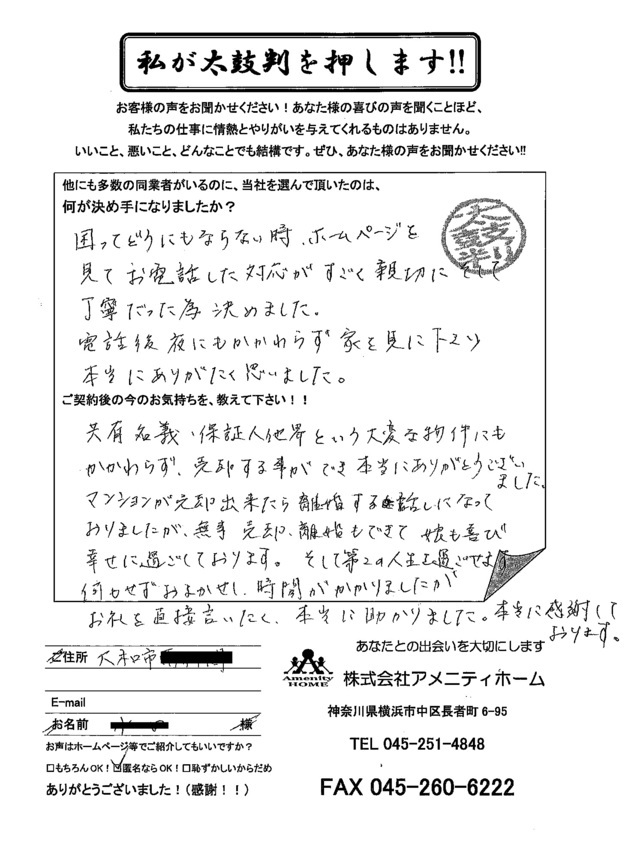 私が太鼓判を押します!!
お客様の声をお聞かせください！あなた様の喜びの声を聞くことほど、
私たちの仕事に情熱とやりがいを与えてくれるものはありません。
いいこと、悪いこと、どんなことでも結構です。ぜひ、あなた様の声をお聞かせください!!
他にも多数の同業者がいるのに、当社を選んで頂いたのは、
何が決め手になりましたか？
太鼓判
困ってどうにもならない時、ホームページを
見てお電話した対応がすごく親切にそして
丁寧だった為決めました。
電話後夜にもかかわらず家を見に下さり
本当にありがたく思いました。
ご契約後の今のお気持ちを、教えて下さい！！
共有名義・保証人他界という大変な物件にも
かかわらず、売却する事ができ本当にありがとうござい
ました。
マンションが売却出来たら離婚する話しになって
おりましたが、無事売却、離婚もできて娘も喜び
幸せに過ごしております。そして第2の人生を過ごせます
何もせずおまかせし、時間がかかりましたが
お礼を直接言いたく、本当に助かりました。本当に感謝して
おります。
ご住所 大和市
E-mail
お名前 様
お声はホームページ等でご紹介してもいいですか？
□もちろんOK！☑匿名ならOK！□恥ずかしいからだめ
ありがとうございました！（感謝！！）
あなたとの出会いを大切にします
Amenity
HOME
株式会社アメニティホーム
神奈川県横浜市中区長者町 6-95
TEL 045-251-4848
FAX 045-260-6222